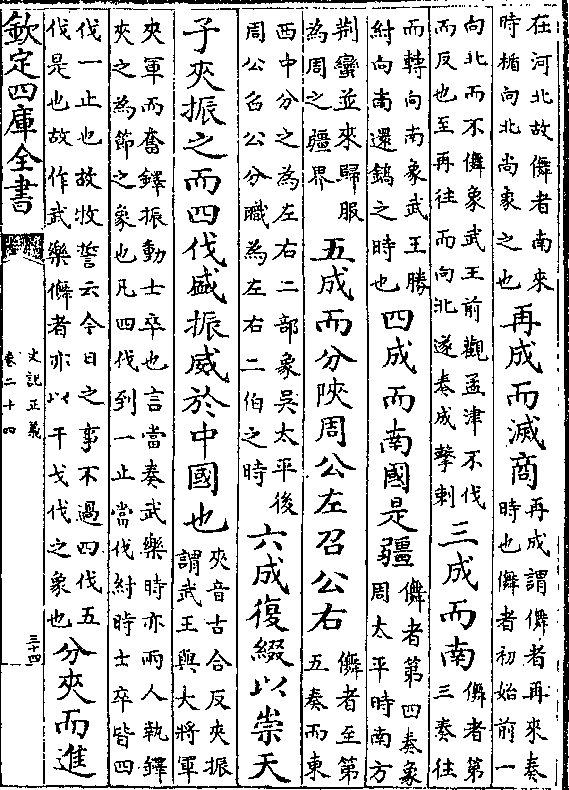 在河北故儛者南來
時楯向北尚象之也
再成而滅商
再成謂儛者再來奏
時也儛者初始前一
向北而不儛象武王前觀孟津不伐
而反也至再往而向北遂奏成擊刺
三成而南
儛者第
三奏往
而轉向南象武王勝
紂向南還鎬之時也
四成而南國是疆
儛者第四奏象
周太平時南方
荆蠻並來歸服
為周之疆界
五成而分陝周公左召公右
儛者至第
五奏而東
西中分之為左右二部象吳太平後
周公召公分職為左右二伯之時
六成復綴以崇天
子夾振之而四伐盛振威於中國也
夾音古合反夾振
謂武王與大將軍
夾軍而奮鐸振動士卒也言當奏武樂時亦兩人執鐸
夾之為節之象也凡四伐到一止當伐紂時士卒皆四
伐一止也故牧誓云今日之事不過四伐五
伐是也故作武樂儛者亦以干戈伐之象也
分夾而進
欽定四庫全書
史記正義
卷二十四
三十四